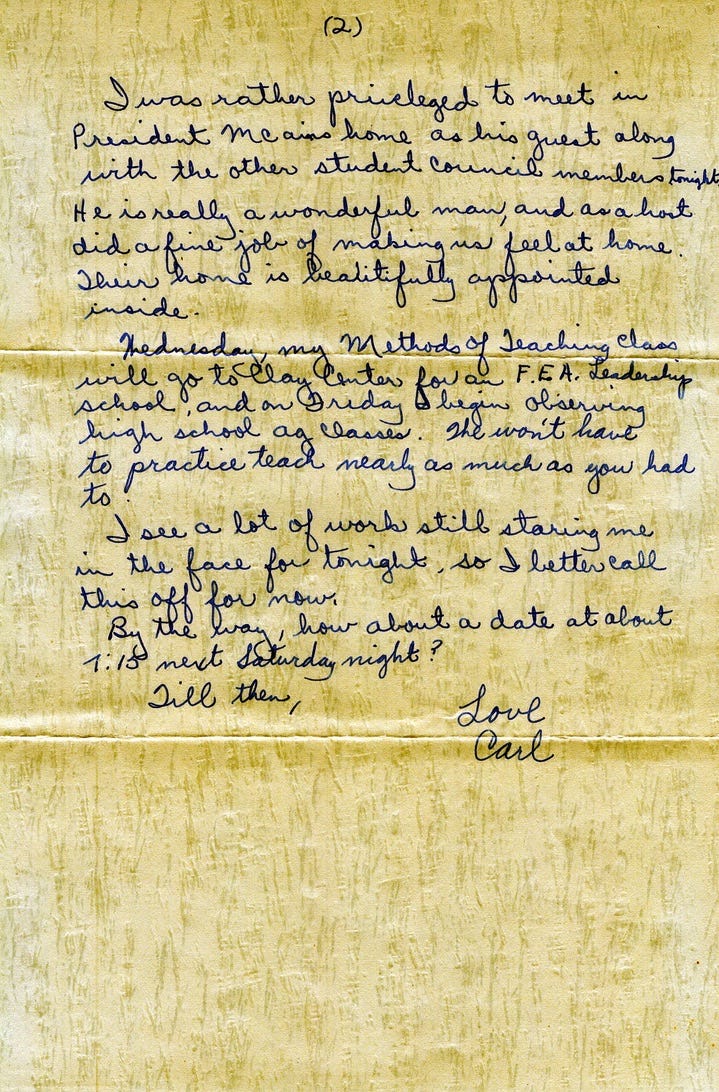 (2)
I was rather privileged to meet in
President McCains home as his guest along
with the other student council members tonight
He is really a wonderful man, and as a host
did a fine job of making us feel at home.
Their home is beautifully appointed
inside.
Wednesday, my Methods of Teaching class
will go to Clay Center for an F.F.A. Leadership
school, and on Friday I begin observing
high school ag classes. We won't have
to practice teach nearly as much as you had
to.
I see a lot of work still staring me
in the face for tonight, so I better call
this off for now.
By the way, how about a date at about
7:15 next Saturday night?
Till then,
Love
Carl